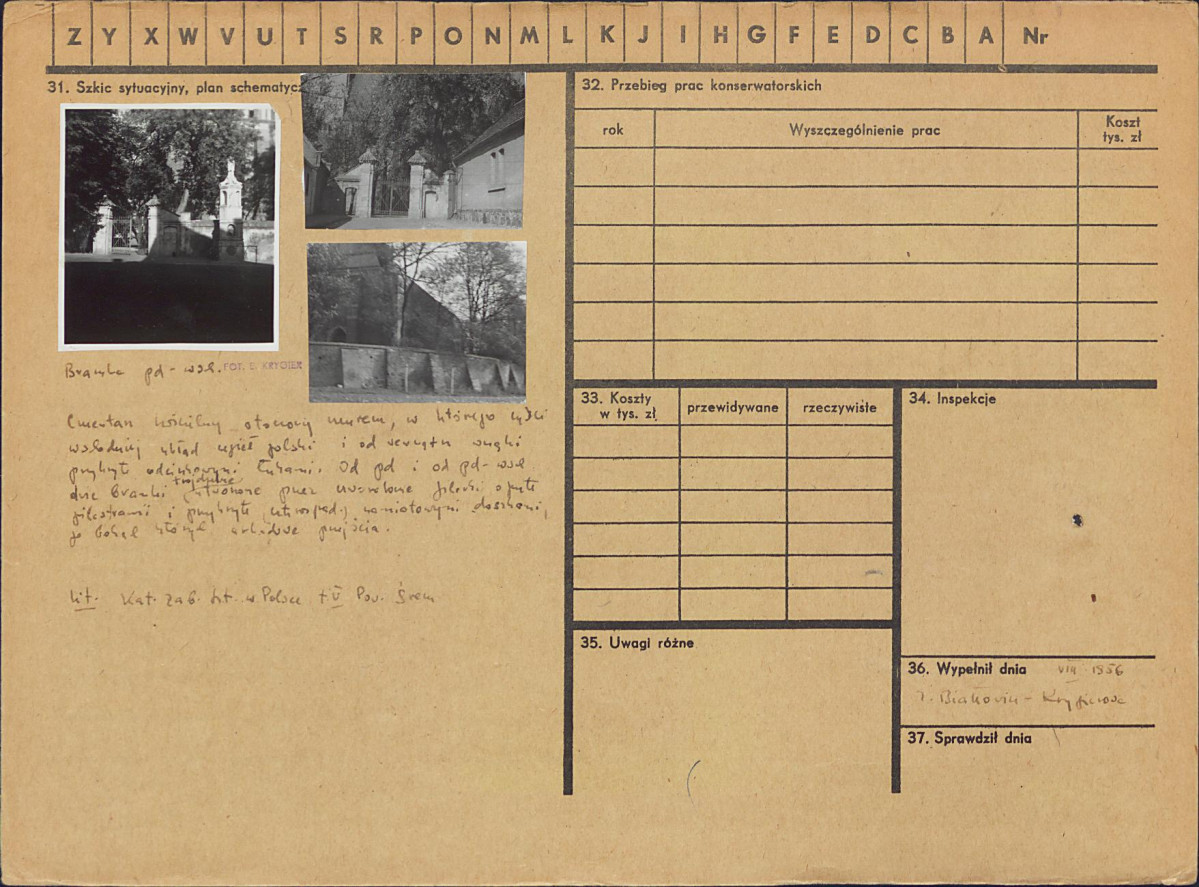 Z Y X W V U T S R P O N M L K J I H G F E D C B A Nr
31. Szkic sytuacyjny, plan schematycz
Bramka pd-wsch. FOT. E. KRYGIER
Cmentarz kościelny otoczony murem, w którego części
wschodniej układ cegieł polski i od zewnątrz wnęki
przykryte odcinkowymi łukami. Od pd i od pd-wsch
dwie bramki trójdzielne utworzone przez filarki ujęte
pilastrami i przykryte czterospad. namiotowymi daszkami,
po bokach których arkadowe przejścia.
Lit. Kat. Zab. Szt. w Polsce t V Pow. Śrem
32. Przebieg prac konserwatorskich
rok
Wyszczególnienie prac
Koszt
tys. zł
33. Koszty
w tys. zł
przewidywane
rzeczywiste
34. Inspekcje
35. Uwagi różne
36. Wypełnił dnia VIII 1956
37. Sprawdził dnia